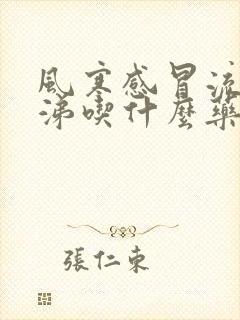 風寒感冒流
涕喫什麼藥
張仁東